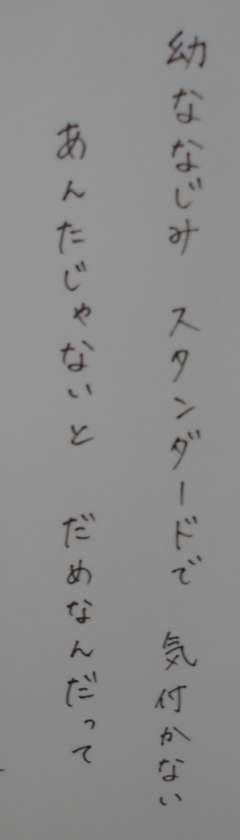 幼ななじみ スタンダードで 気付かない
あんたじゃないと だめなんだって